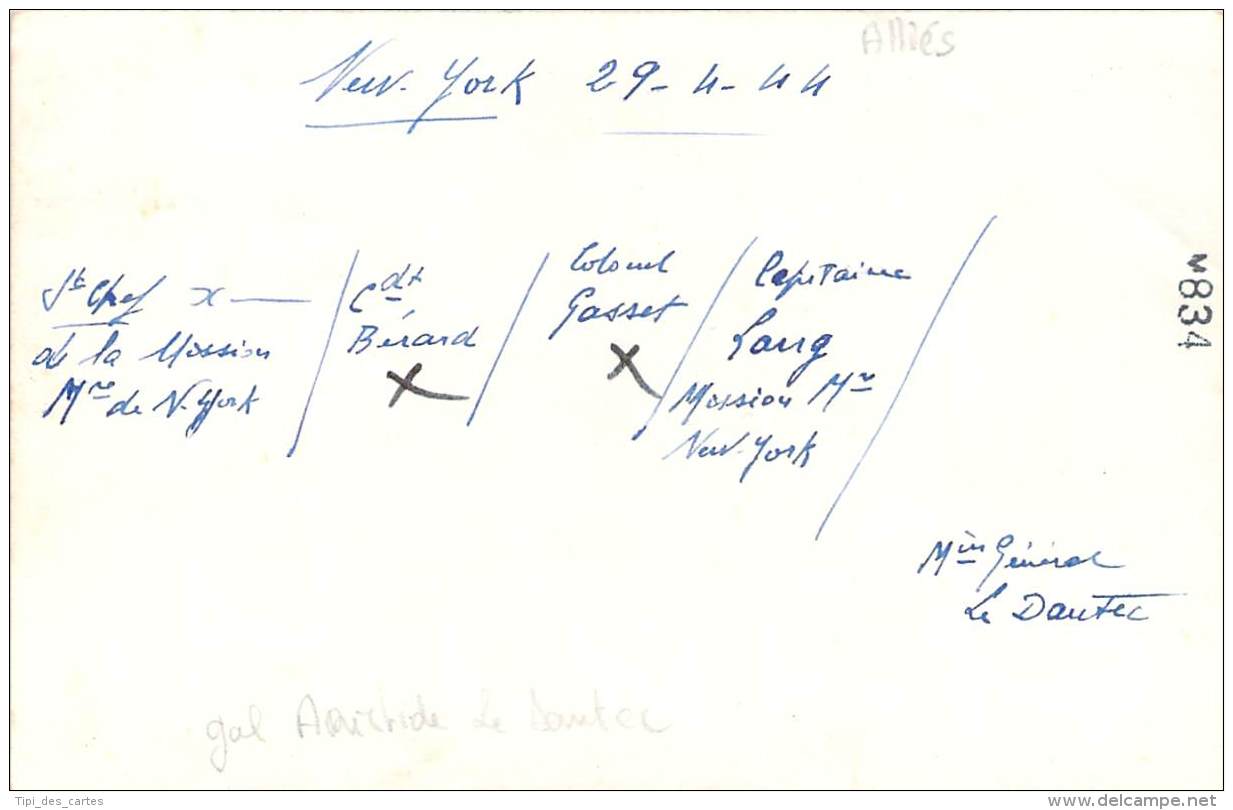 Alliés
New-York 29-4-44
St Chef x —
de la Mission
Mre de N-York
Cdt
Bérard
Colonel
Gasset
Capitaine
Lang
Mission Mre
New-York
v834
Min Général
Le Dantec
gal Aristide Le Dantec
Tipi_des_cartes
www.delcampe.net